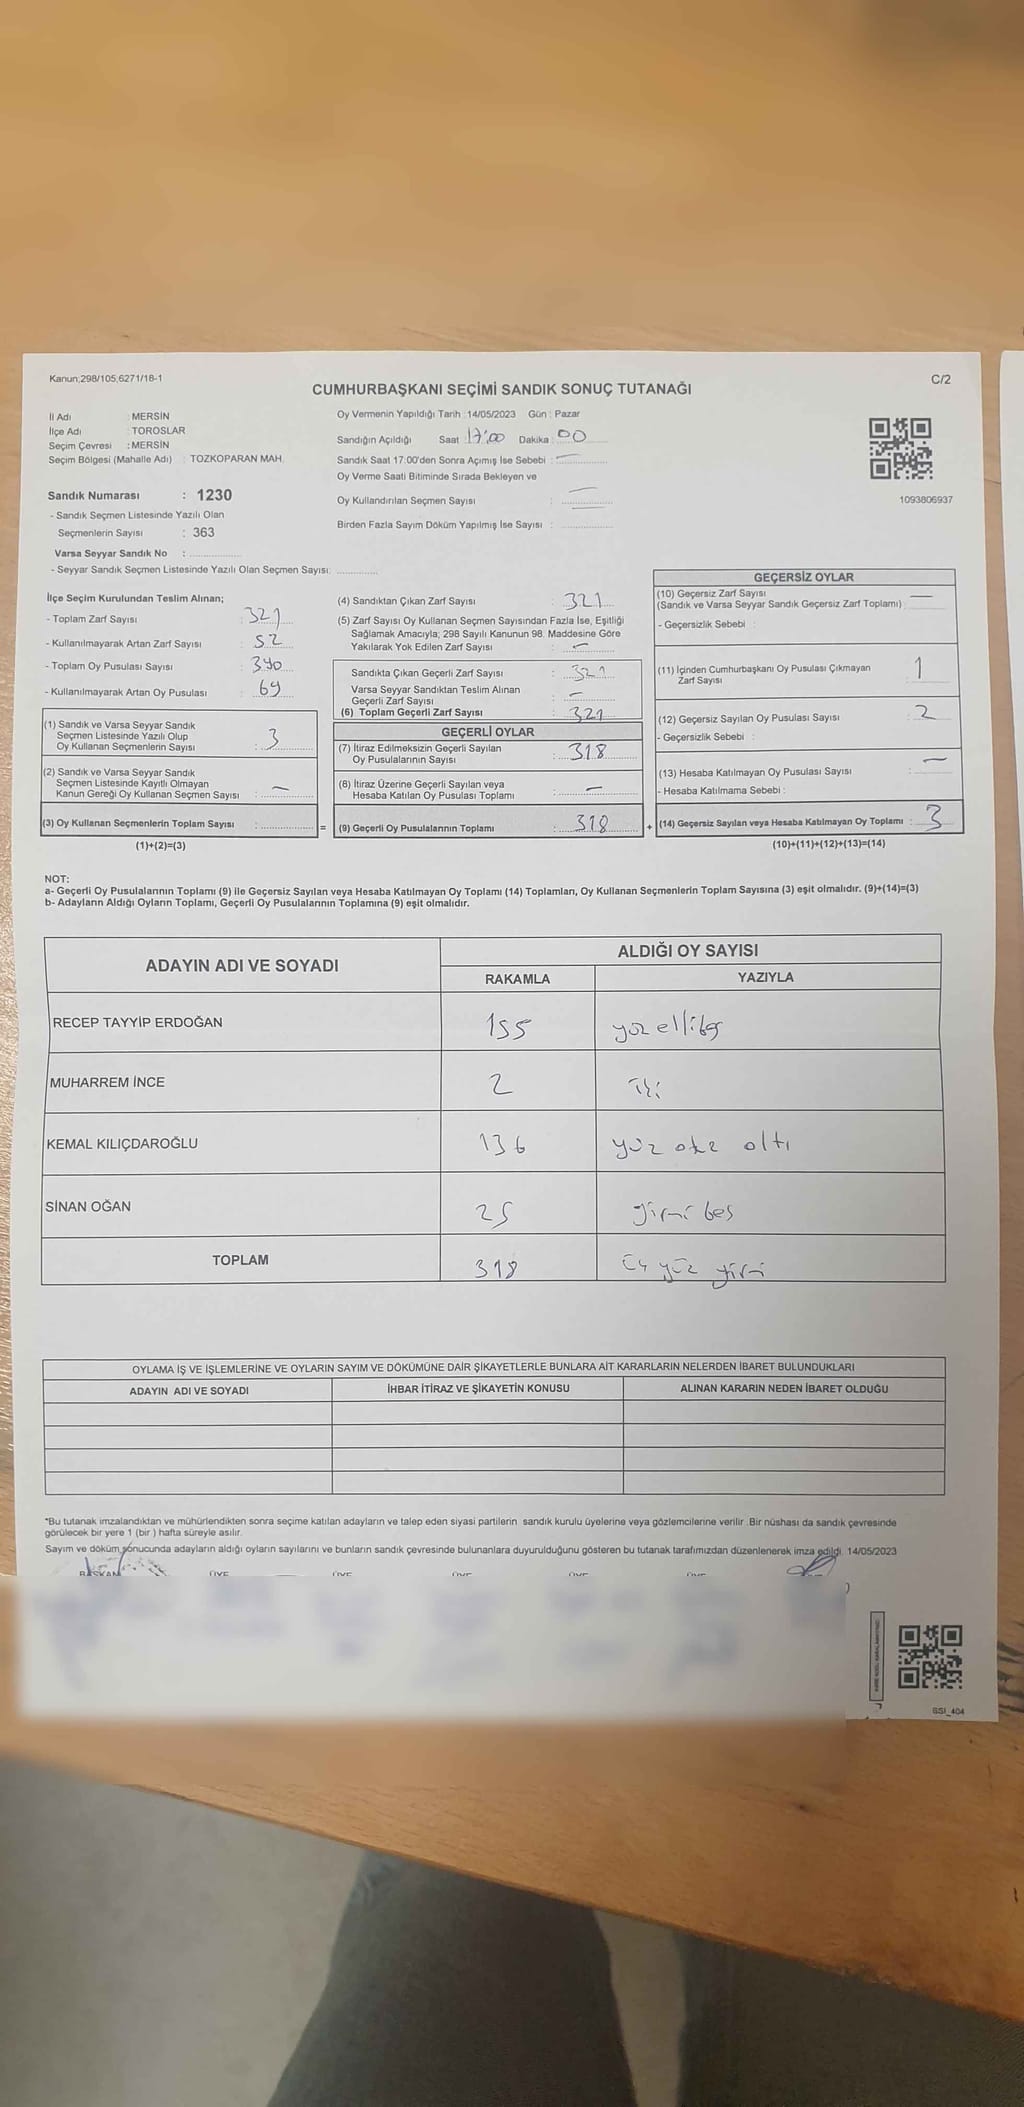 Kanun;298/105;6271/18-1
C/2
CUMHURBAŞKANI SEÇİMİ SANDIK SONUÇ TUTANAĞI
İl Adı : MERSİN
İlçe Adı : TOROSLAR
Seçim Çevresi : MERSİN
Seçim Bölgesi (Mahalle Adı) : TOZKOPARAN MAH.
Sandık Numarası : 1230
- Sandık Seçmen Listesinde Yazılı Olan
Seçmenlerin Sayısı : 363
Varsa Seyyar Sandık No :
- Seyyar Sandık Seçmen Listesinde Yazılı Olan Seçmen Sayısı:
Oy Vermenin Yapıldığı Tarih :14/05/2023 Gün : Pazar
Sandığın Açıldığı Saat : 17:00 Dakika : 00
Sandık Saat 17:00'den Sonra Açımış İse Sebebi : —
Oy Verme Saati Bitiminde Sırada Bekleyen ve
Oy Kullandırılan Seçmen Sayısı : —
Birden Fazla Sayım Döküm Yapılmış İse Sayısı :
1093806937
İlçe Seçim Kurulundan Teslim Alınan;
- Toplam Zarf Sayısı : 321
- Kullanılmayarak Artan Zarf Sayısı : 52
- Toplam Oy Pusulası Sayısı : 390
- Kullanılmayarak Artan Oy Pusulası : 69
(1) Sandık ve Varsa Seyyar Sandık
Seçmen Listesinde Yazılı Olup
Oy Kullanan Seçmenlerin Sayısı : 3
(2) Sandık ve Varsa Seyyar Sandık
Seçmen Listesinde Kayıtlı Olmayan
Kanun Gereği Oy Kullanan Seçmen Sayısı : —
(3) Oy Kullanan Seçmenlerin Toplam Sayısı :
(1)+(2)=(3)
(4) Sandıktan Çıkan Zarf Sayısı : 321
(5) Zarf Sayısı Oy Kullanan Seçmen Sayısından Fazla İse, Eşitliği
Sağlamak Amacıyla; 298 Sayılı Kanunun 98. Maddesine Göre
Yakılarak Yok Edilen Zarf Sayısı : —
Sandıkta Çıkan Geçerli Zarf Sayısı : 321
Varsa Seyyar Sandıktan Teslim Alınan
Geçerli Zarf Sayısı : —
(6) Toplam Geçerli Zarf Sayısı : 321
GEÇERLİ OYLAR
(7) İtiraz Edilmeksizin Geçerli Sayılan
Oy Pusulalarının Sayısı : 318
(8) İtiraz Üzerine Geçerli Sayılan veya
Hesaba Katılan Oy Pusulası Toplamı : —
= (9) Geçerli Oy Pusulalarının Toplamı : 318 +
GEÇERSİZ OYLAR
(10) Geçersiz Zarf Sayısı —
(Sandık ve Varsa Seyyar Sandık Geçersiz Zarf Toplamı) :
- Geçersizlik Sebebi :
(11) İçinden Cumhurbaşkanı Oy Pusulası Çıkmayan
Zarf Sayısı : 1
(12) Geçersiz Sayılan Oy Pusulası Sayısı : 2
- Geçersizlik Sebebi :
(13) Hesaba Katılmayan Oy Pusulası Sayısı : —
- Hesaba Katılmama Sebebi :
(14) Geçersiz Sayılan veya Hesaba Katılmayan Oy Toplamı : 3
(10)+(11)+(12)+(13)=(14)
NOT:
a- Geçerli Oy Pusulalarının Toplamı (9) ile Geçersiz Sayılan veya Hesaba Katılmayan Oy Toplamı (14) Toplamları, Oy Kullanan Seçmenlerin Toplam Sayısına (3) eşit olmalıdır. (9)+(14)=(3)
b- Adayların Aldığı Oyların Toplamı, Geçerli Oy Pusulalarının Toplamına (9) eşit olmalıdır.
ADAYIN ADI VE SOYADI
ALDIĞI OY SAYISI
RAKAMLA YAZIYLA
RECEP TAYYİP ERDOĞAN 155 yüz elli beş
MUHARREM İNCE 2 iki
KEMAL KILIÇDAROĞLU 136 yüz otuz altı
SİNAN OĞAN 25 yirmi beş
TOPLAM 318 üç yüz yirmi
OYLAMA İŞ VE İŞLEMLERİNE VE OYLARIN SAYIM VE DÖKÜMÜNE DAİR ŞİKAYETLERLE BUNLARA AİT KARARLARIN NELERDEN İBARET BULUNDUKLARI
ADAYIN ADI VE SOYADI İHBAR İTİRAZ VE ŞİKAYETİN KONUSU ALINAN KARARIN NEDEN İBARET OLDUĞU
*Bu tutanak imzalandıktan ve mühürlendikten sonra seçime katılan adayların ve talep eden siyasi partilerin sandık kurulu üyelerine veya gözlemcilerine verilir .Bir nüshası da sandık çevresinde
görülecek bir yere 1 (bir ) hafta süreyle asılır.
Sayım ve döküm sonucunda adayların aldığı oyların sayılarını ve bunların sandık çevresinde bulunanlara duyurulduğunu gösteren bu tutanak tarafımızdan düzenlenerek imza edildi. 14/05/2023
BAŞKAN ÜYE ÜYE ÜYE ÜYE ÜYE
SSI_404